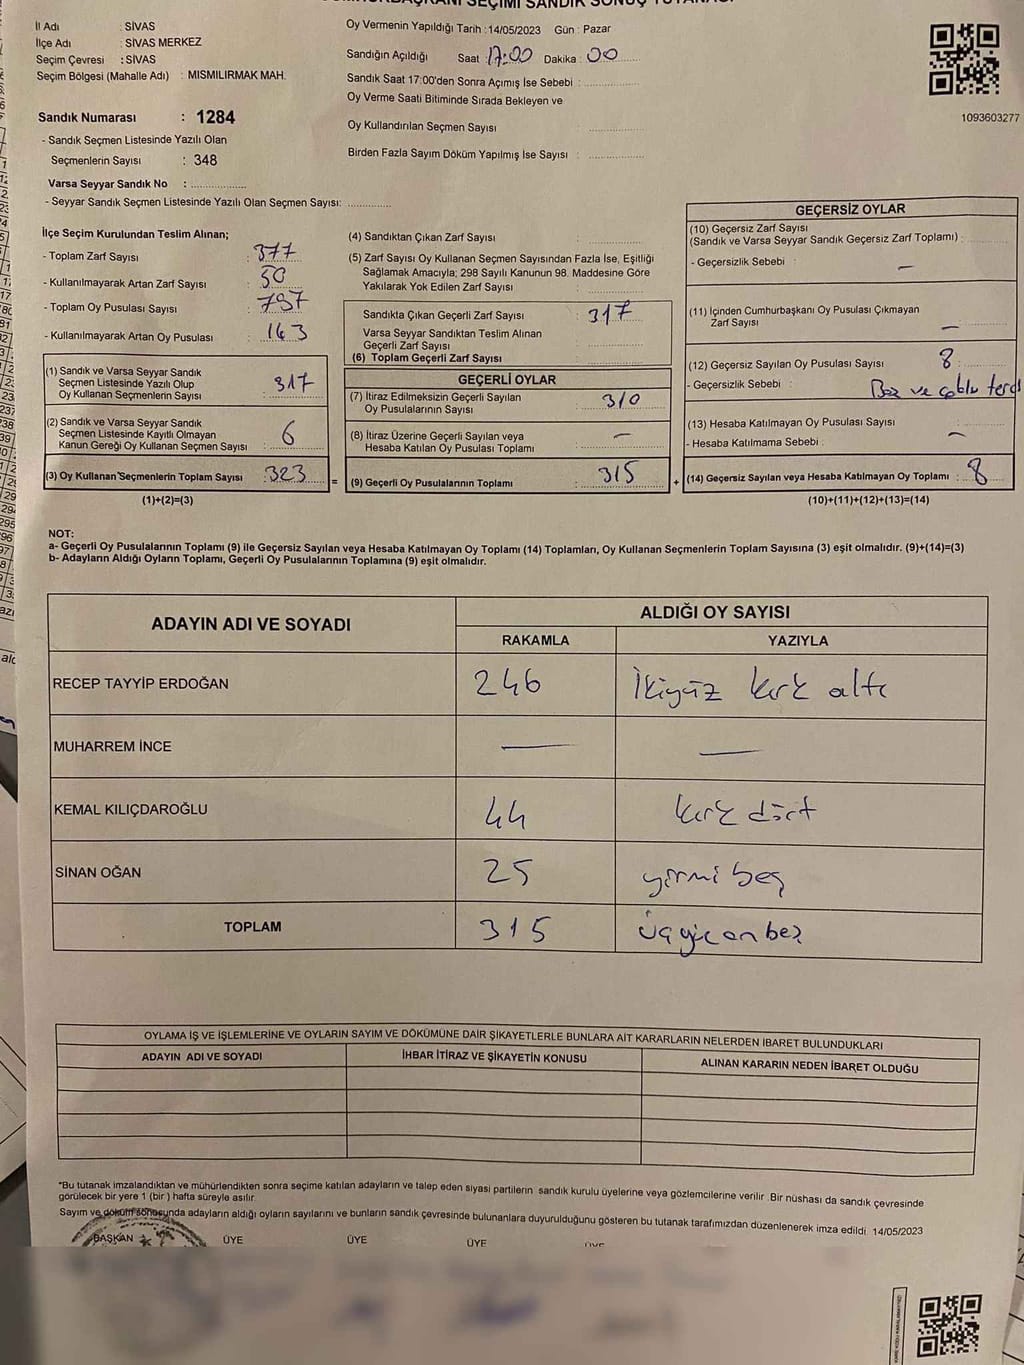 İl Adı : SİVAS
İlçe Adı : SİVAS MERKEZ
Seçim Çevresi : SİVAS
Seçim Bölgesi (Mahalle Adı) : MISMILIRMAK MAH.
Oy Vermenin Yapıldığı Tarih :14/05/2023 Gün : Pazar
Sandığın Açıldığı Saat 17:00 Dakika : 00
Sandık Saat 17:00'den Sonra Açımış İse Sebebi :
Oy Verme Saati Bitiminde Sırada Bekleyen ve
Oy Kullandırılan Seçmen Sayısı
Birden Fazla Sayım Döküm Yapılmış İse Sayısı :
1093603277
Sandık Numarası : 1284
- Sandık Seçmen Listesinde Yazılı Olan
Seçmenlerin Sayısı : 348
Varsa Seyyar Sandık No :
- Seyyar Sandık Seçmen Listesinde Yazılı Olan Seçmen Sayısı:
İlçe Seçim Kurulundan Teslim Alınan;
- Toplam Zarf Sayısı : 377
- Kullanılmayarak Artan Zarf Sayısı : 50
- Toplam Oy Pusulası Sayısı :
- Kullanılmayarak Artan Oy Pusulası : 163
(1) Sandık ve Varsa Seyyar Sandık
Seçmen Listesinde Yazılı Olup
Oy Kullanan Seçmenlerin Sayısı : 317
(2) Sandık ve Varsa Seyyar Sandık
Seçmen Listesinde Kayıtlı Olmayan
Kanun Gereği Oy Kullanan Seçmen Sayısı : 6
(3) Oy Kullanan Seçmenlerin Toplam Sayısı : 323
(1)+(2)=(3)
(4) Sandıktan Çıkan Zarf Sayısı :
(5) Zarf Sayısı Oy Kullanan Seçmen Sayısından Fazla İse, Eşitliği
Sağlamak Amacıyla; 298 Sayılı Kanunun 98. Maddesine Göre
Yakılarak Yok Edilen Zarf Sayısı :
Sandıkta Çıkan Geçerli Zarf Sayısı : 317
Varsa Seyyar Sandıktan Teslim Alınan
Geçerli Zarf Sayısı :
(6) Toplam Geçerli Zarf Sayısı :
GEÇERLİ OYLAR
(7) İtiraz Edilmeksizin Geçerli Sayılan
Oy Pusulalarının Sayısı : 310
(8) İtiraz Üzerine Geçerli Sayılan veya
Hesaba Katılan Oy Pusulası Toplamı : —
=
(9) Geçerli Oy Pusulalarının Toplamı : 315
GEÇERSİZ OYLAR
(10) Geçersiz Zarf Sayısı
(Sandık ve Varsa Seyyar Sandık Geçersiz Zarf Toplamı) :
- Geçersizlik Sebebi : —
(11) İçinden Cumhurbaşkanı Oy Pusulası Çıkmayan
Zarf Sayısı : —
(12) Geçersiz Sayılan Oy Pusulası Sayısı : 8
- Geçersizlik Sebebi :
(13) Hesaba Katılmayan Oy Pusulası Sayısı :
- Hesaba Katılmama Sebebi : —
+
(14) Geçersiz Sayılan veya Hesaba Katılmayan Oy Toplamı : 8
(10)+(11)+(12)+(13)=(14)
NOT:
a- Geçerli Oy Pusulalarının Toplamı (9) ile Geçersiz Sayılan veya Hesaba Katılmayan Oy Toplamı (14) Toplamları, Oy Kullanan Seçmenlerin Toplam Sayısına (3) eşit olmalıdır. (9)+(14)=(3)
b- Adayların Aldığı Oyların Toplamı, Geçerli Oy Pusulalarının Toplamına (9) eşit olmalıdır.
ADAYIN ADI VE SOYADI
ALDIĞI OY SAYISI
RAKAMLA YAZIYLA
RECEP TAYYİP ERDOĞAN 246 İkiyüz kırk altı
MUHARREM İNCE — —
KEMAL KILIÇDAROĞLU 44 kırk dört
SİNAN OĞAN 25 yirmi beş
TOPLAM 315 üçyüz on beş
OYLAMA İŞ VE İŞLEMLERİNE VE OYLARIN SAYIM VE DÖKÜMÜNE DAİR ŞİKAYETLERLE BUNLARA AİT KARARLARIN NELERDEN İBARET BULUNDUKLARI
ADAYIN ADI VE SOYADI İHBAR İTİRAZ VE ŞİKAYETİN KONUSU ALINAN KARARIN NEDEN İBARET OLDUĞU
*Bu tutanak imzalandıktan ve mühürlendikten sonra seçime katılan adayların ve talep eden siyasi partilerin sandık kurulu üyelerine veya gözlemcilerine verilir .Bir nüshası da sandık çevresinde
görülecek bir yere 1 (bir ) hafta süreyle asılır.
Sayım ve döküm sonucunda adayların aldığı oyların sayılarını ve bunların sandık çevresinde bulunanlara duyurulduğunu gösteren bu tutanak tarafımızdan düzenlenerek imza edildi. 14/05/2023
BAŞKAN ÜYE ÜYE ÜYE